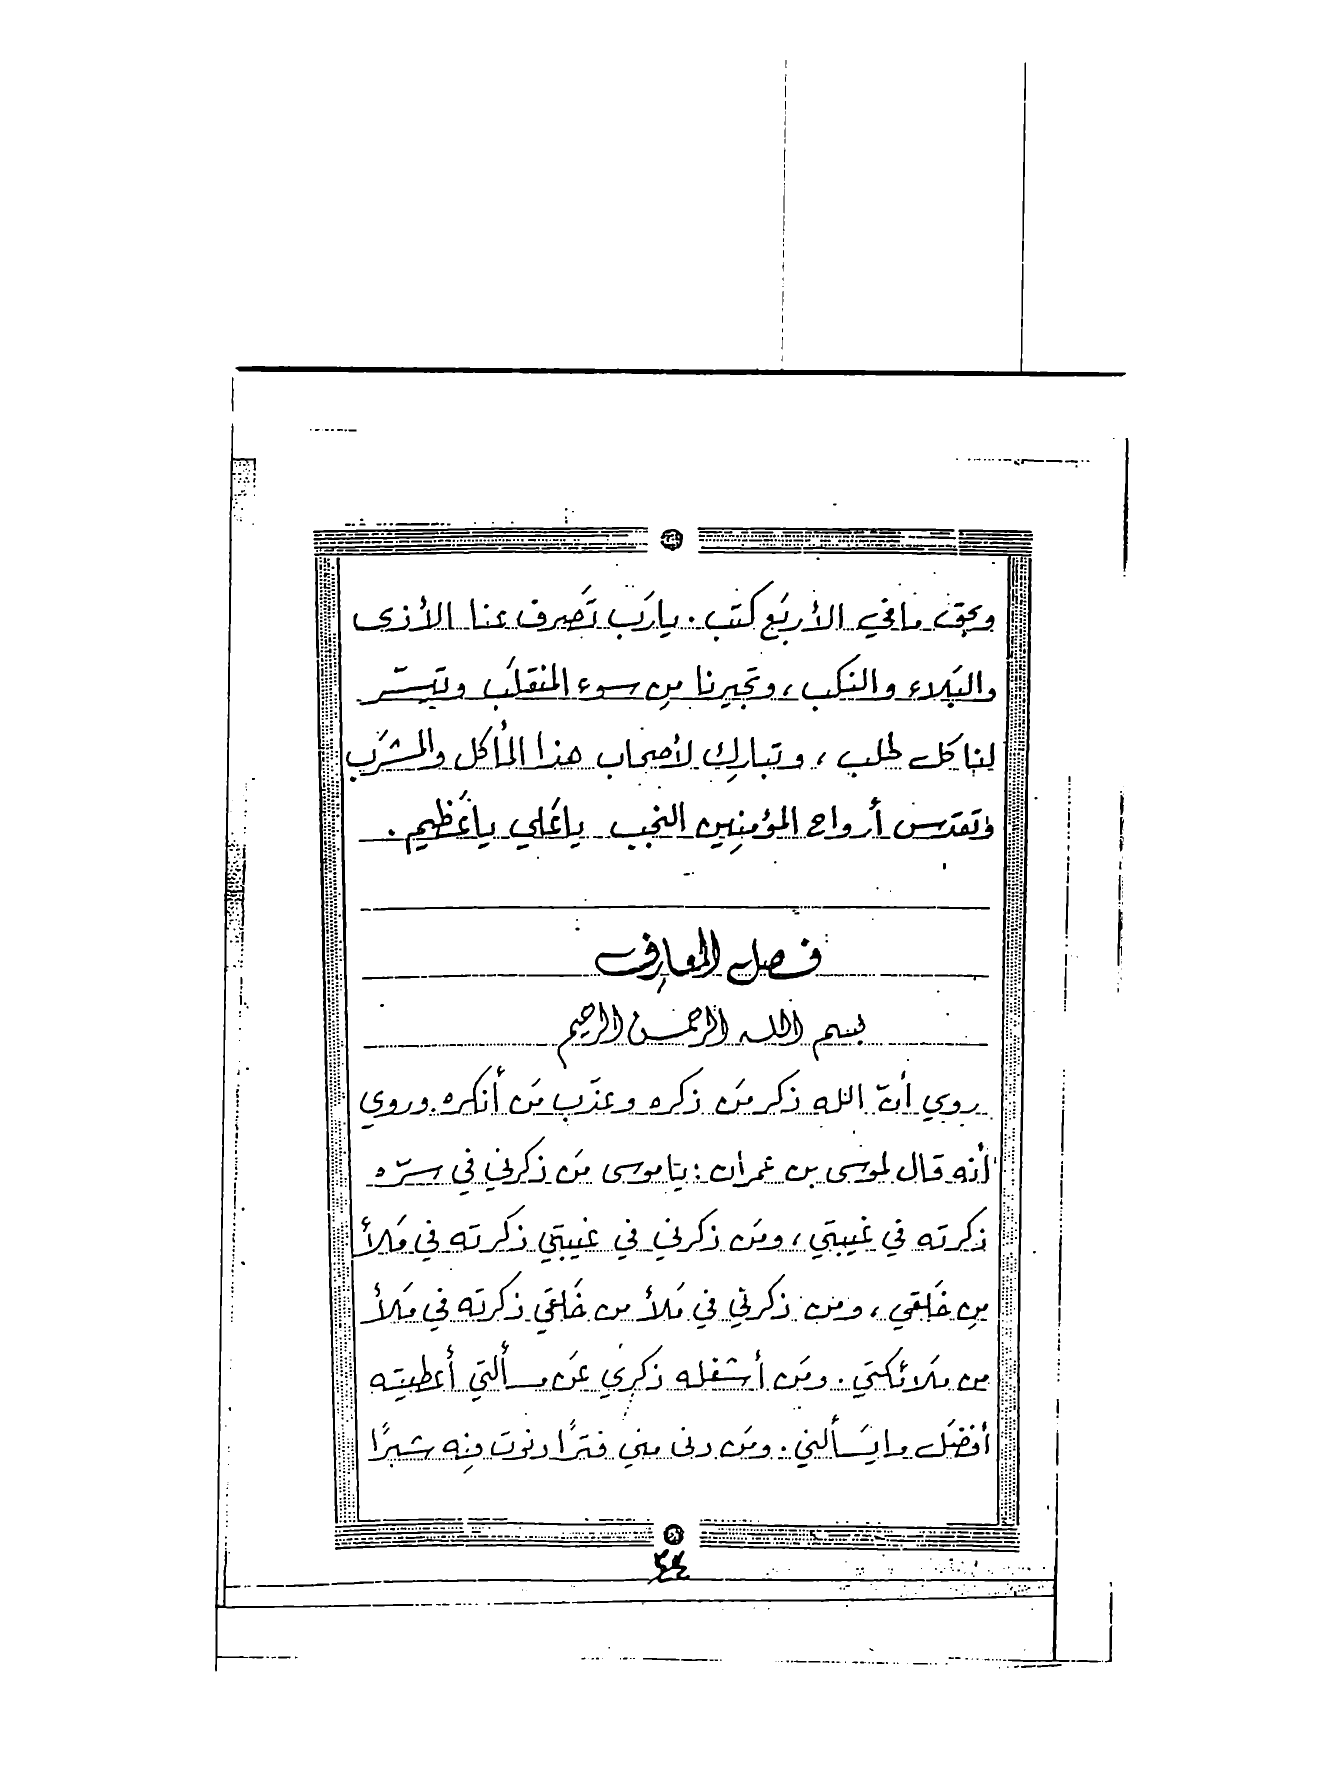 وبحق مافي الأربَع كتب . يارَب تَصرف عنا الأذى
والبَلاء والنكب ، وتجيرنا مِن سوء المنقلَب وتيَسّر
لنا كل طلب ، وتبارِك لأصحاب هذا المأكل والمشرَب
وتقدس أرواح المؤمنِين النجب ياعَلي ياعَظيم .
فصل المعارِف
بسم الله الرحمن الرحيم
روي أنّ الله ذكر مَن ذكره وعذّب مَن أنكره . وروي
أنه قال لموسى بن عمران : يا موسى مَن ذكرني في سرّه
ذكرته في غَيبتي ، ومَن ذكرني في غيبتي ذكرته في مَلأ
مِن خَلقي ، ومن ذكرني في مَلأ من خَلقي ذكرته في مَلأ
من مَلائكتي . ومَن أشغله ذكري عَن مسألتي أعطيته
أفضَل ما يَسألني . ومَن دنى مني فترًا دنوت منِه شبرًا